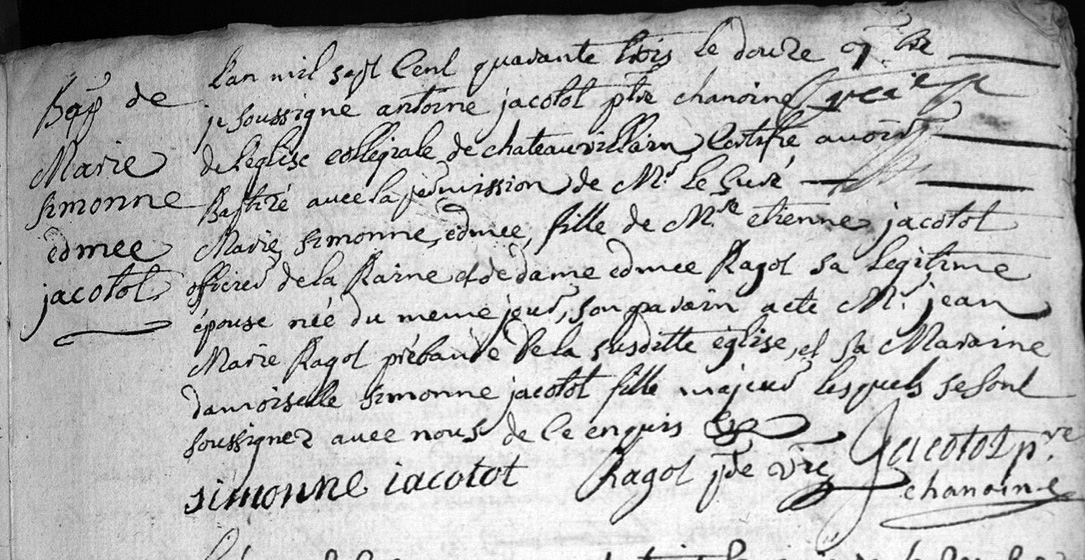 Bap de
Marie
simonne
edmee
jacotot
Lan mil sept Cent quarante trois le douze 9bre
je soussigne antoine jacotot ptre chanoine
de leglise collegiale de chateauvillain, Certifie avoir
Baptizé avec la permission de Mr. le Curé
Marie, simonne, edmee, fille de Mre. etienne jacotot
officier de la Raine et de dame edmee Ragot sa legitime
épouse née du meme jour, son parain a eté Mr. jean
Marie Ragot prébandé de la susditte église, et sa Maraine
damoiselle simonne jacotot fille majeur lesquels se sont
soussignez avec nous de ce enquis
simonne iacotot Ragot Jacotot p.re
chanoine